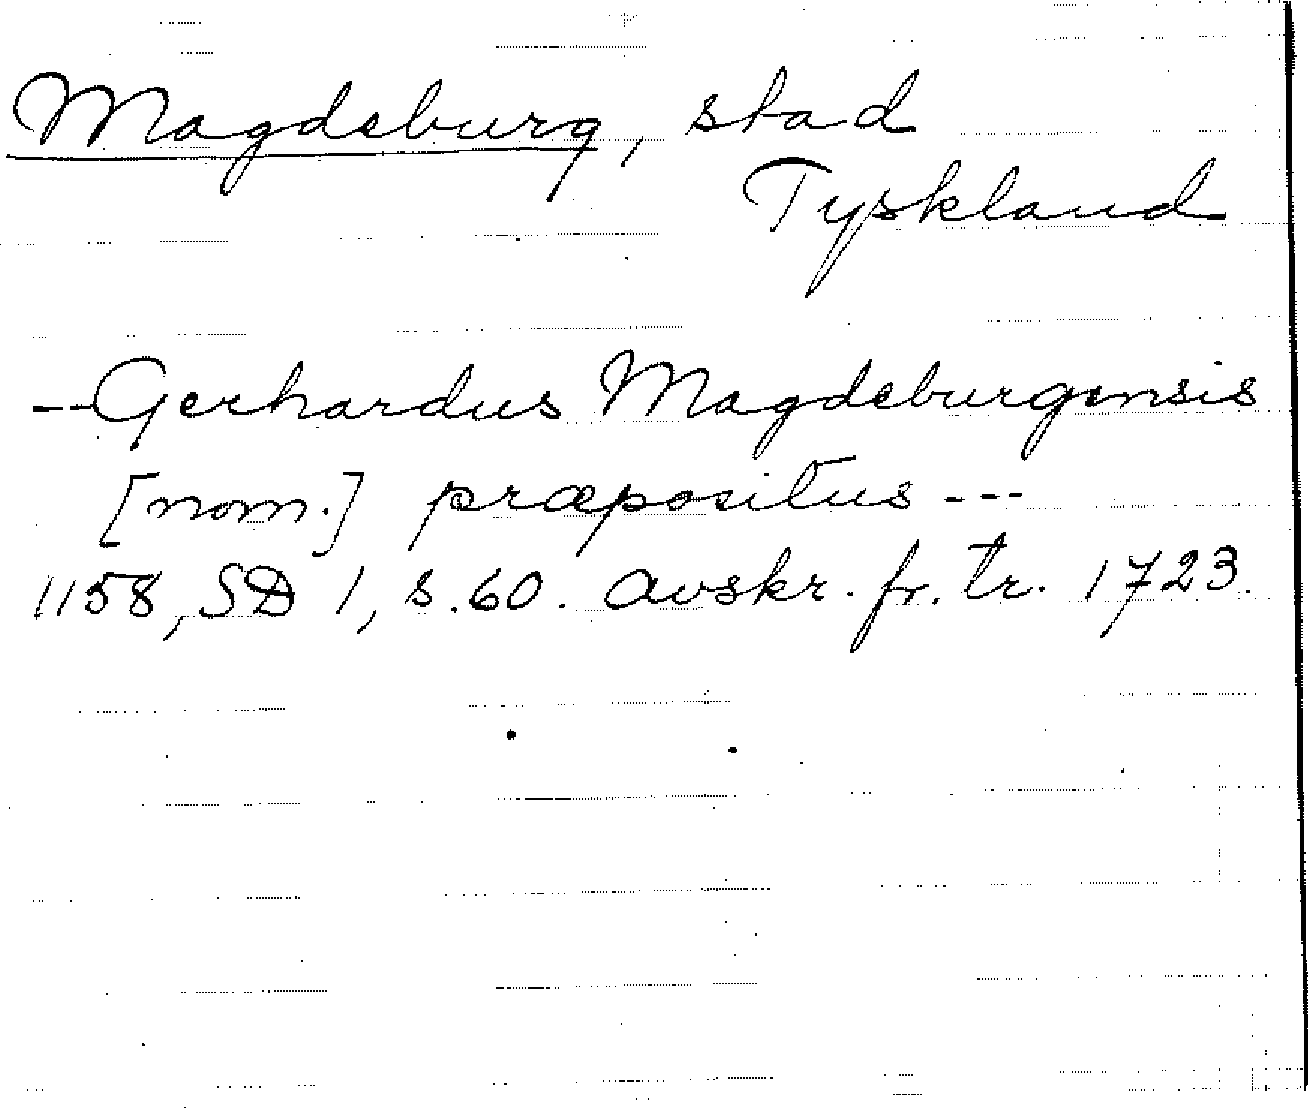 Magdeburg, stad
Tyskland
--Gerhardus Magdeburgensis
[nom.] præpositus ---
1158, SD 1, s.60. Avskr. fr. tr. 1723.